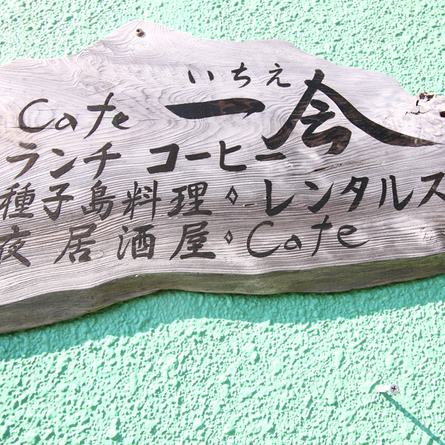 いちえ
Cafe 一會
ランチ コーヒー
種子島料理◇レンタルス
夜 居酒屋◇Cafe